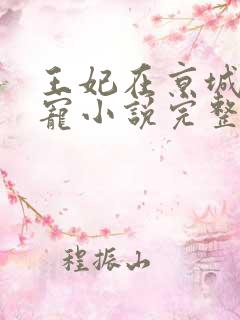 王妃在京城
宠小说完整
程振山